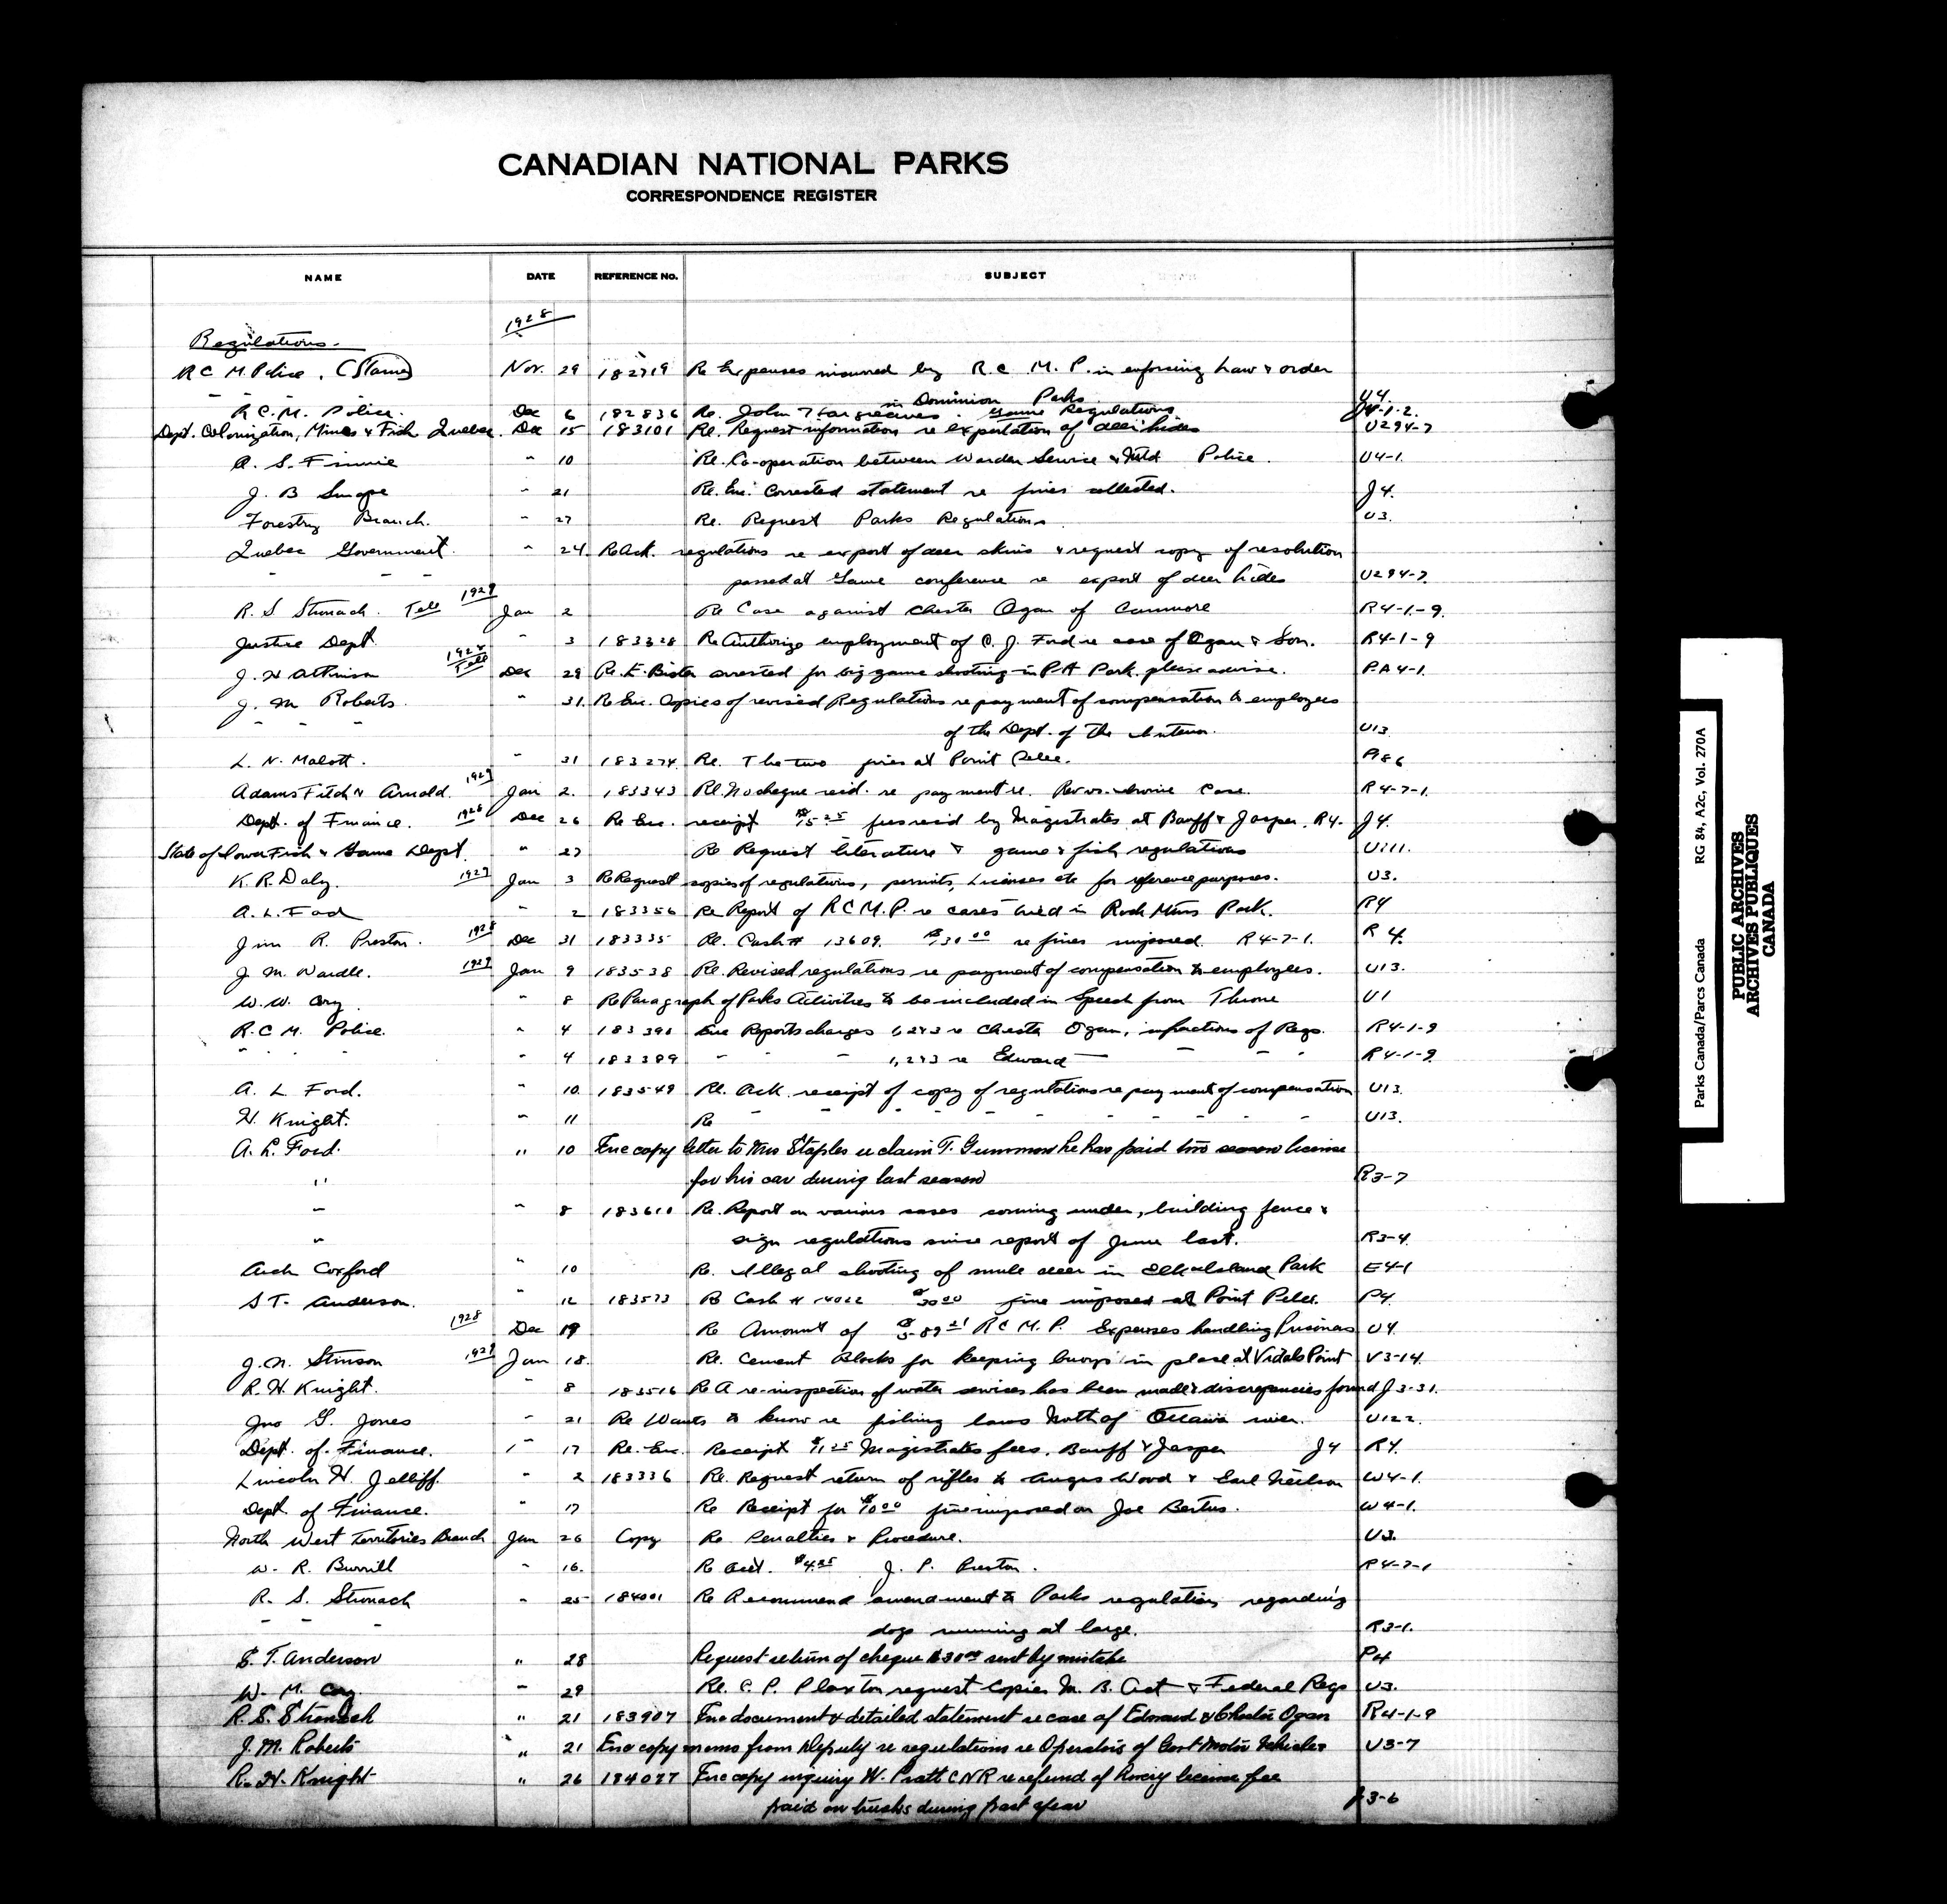 CANADIAN NATIONAL PARKS
CORRESPONDENCE REGISTER
NAME DATE REFERENCE No. SUBJECT
1928
Regulations.
R C M. Police. Nov. 29 182719 Re Expenses incurred by R. C. M. P. in enforcing Law & order
in Dominion Parks U4.
R.C.M. Police. Dec 6 182836 Re. John Hargreaves. Game Regulations J4-1-2.
Dept. Colonization, Mines & Fish Quebec. Dec 15 183101 Re. Request information re exportation of deer hides U294-7
S. Finnie " 10 Re. Co-operation between Warden Service & Police. U4-1.
J. B " 21 Re. Enc. Corrected statement re fines collected. J4.
Forestry Branch. " 27 Re. Request Parks Regulations U3.
Quebec Government. " 24 Re Ack. regulations re export of deer skins & request copy of resolution
" " " passed at Game conference re export of deer hides U294-7.
R. S Stronach. Tel 1929 Jan 2 Re Case against Chester Ogan of Canmore R4-1-9.
Justice Dept " 3 183328 Re Authorize employment of C. J. Ford re case of Ogan & Son. R4-1-9
J. H Atkinson 1928 Tel Dec 29 Re. E. arrested for big game shooting in P.A Park please advise. PA4-1.
J. M Roberts. " 31. Re Enc. Copies of revised Regulations re payment of compensation to employees
" " " of the Dept. of the Interior. U13
L. N. Malott. " 31 183274 Re. The two fires at Point Pelee. P186
Adams Fitch & Arnold. 1929 Jan 2. 183343 Re. No cheque recd. re payment re. Rex vs. Case. R4-7-1.
Dept. of Finance. 1928 Dec 26 Re Enc. receipt $15.25 fees recd by Magistrates at Banff & Jasper. R4- J4.
State of Iowa Fish & Game Dept. " 27 Re Request literature & game & fish regulations U111.
K. R. Daly. 1929 Jan 3 Re Request copies of regulations, permits, Licenses etc for reference purposes. U3.
A. L. Ford " 2 183356 Re Report of R C M. P. re cases tried in Rock Mtns Park. R4
Jim R. Preston. 1928 Dec 31 183335 Re. Cash # 13609. $130.00 re fines imposed. R4-7-1. R4.
J. M. Wardle. 1929 Jan 9 183538 Re. Revised regulations re payment of compensation to employees. U13.
W. W. Cory " 8 Re Paragraph of Parks Activities to be included in Speech from Throne U1
R. C M. Police. " 4 183390 Enc Reports charges 1,2 & 3 re Chester Ogan, infractions of Regs. R4-1-9
" " " " 4 183389 " " " 1,2 & 3 re Edward " " " " R4-1-9.
A. L Ford. " 10. 183549 Re. Ack. receipt of copy of regulations re payment of compensation U13.
H. Knight. " 11 Re " " " " " " " " " U13.
A. L. Ford. " 10 Enc copy letter to Mrs Staples re claim T. Gummow he has paid two season license
" for his car during last season R3-7
" " 8 183610 Re. Report on various cases coming under, building fence &
" sign regulations since report of June last. R3-4.
Arch Coxford " 10 Re. Illegal shooting of mule deer in Elk Island Park E4-1
S T. Anderson. " 12 183573 Re Cash # 14022 $30.00 fine imposed at Point Pelee. P4
1928 Dec 19 Re Amount of R C M. P. Expenses handling Prisoners U4.
J. N. Stinson 1929 Jan 18. Re. Cement Blocks for keeping buoys in place at Vidals Point V3-14.
R. H Knight. " 8 183516 Re A re-inspection of water services has been made & discrepancies found J3-31.
Jno G. Jones " 21 Re Wants to know re fishing laws North of Ottawa river. U122.
Dept. of. Finance. " 17 Re. Enc. Receipt Magistrates fees. Banff & Jasper J4 R4.
Lincoln H. Jelliff. " 2 183336 Re. Request return of rifles to Angus Wood & Earl Neilson W4-1.
Dept of Finance. " 17 Re Receipt for $10.00 fine imposed on Joe Bertus. W4-1.
North West Territories Branch Jan 26 Copy Re Penalties & Procedure. U3.
W. R. Burrill " 16. Re acct. J. P. Preston. R4-7-1
R. S. Stronach " 25 184001 Re Recommend amendment to Parks regulation regarding
" " " dogs running at large. R3-1.
S. T. Anderson " 28 Request return of cheque $30.00 sent by mistake P4
W. M. Cory " 29 Re. C. P. Plaxton request Copies M. B. Act & Federal Regs U3.
R. S. Stronach " 21 183907 Enc document & detailed statement re case of Edward & Chester Ogan R4-1-9
J. M. Roberts " 21 Enc copy memo from Deputy re regulations re Operators of Govt Motor Vehicles U3-7
R. H. Knight " 26 184087 Enc copy inquiry W. Pratt CNR re refund of license fee
paid on trucks during past year J3-6
Parks Canada/Parcs Canada RG 84, A2c, Vol. 270A
PUBLIC ARCHIVES
ARCHIVES PUBLIQUES
CANADA